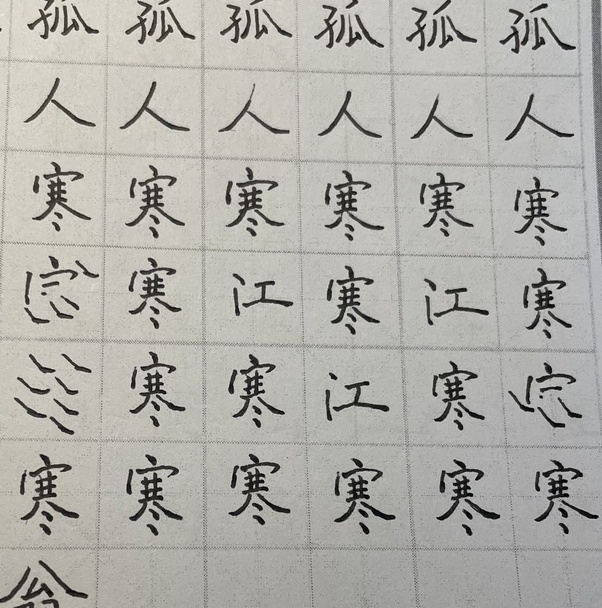 孤孤孤孤孤孤
人人人人人人
寒寒寒寒寒寒
寒江寒江寒
寒寒江寒
寒寒寒寒寒寒
翁